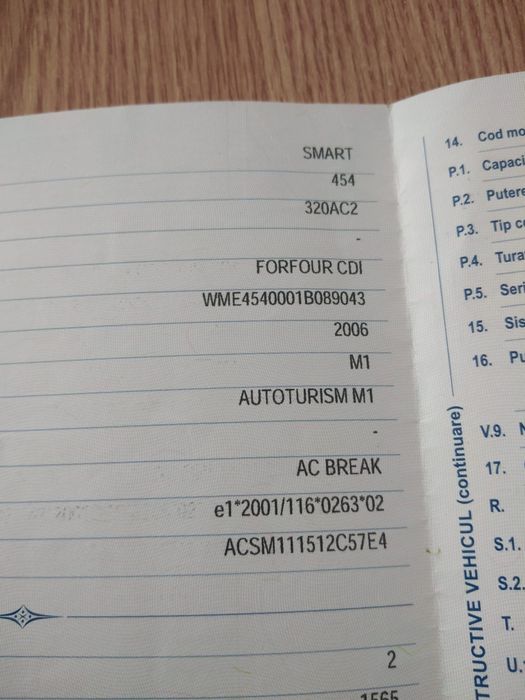 SMART
454
320AC2
-
FORFOUR CDI
WME4540001B089043
2006
M1
AUTOTURISM M1
-
AC BREAK
e1*2001/116*0263*02
ACSM111512C57E4
2
1565
14. Cod mo
P.1. Capaci
P.2. Putere
P.3. Tip c
P.4. Tura
P.5. Seri
15. Sis
16. Pu
TRUCTIVE VEHICUL (continuare)
V.9. N
17.
R.
S.1.
S.2.
T.
U.